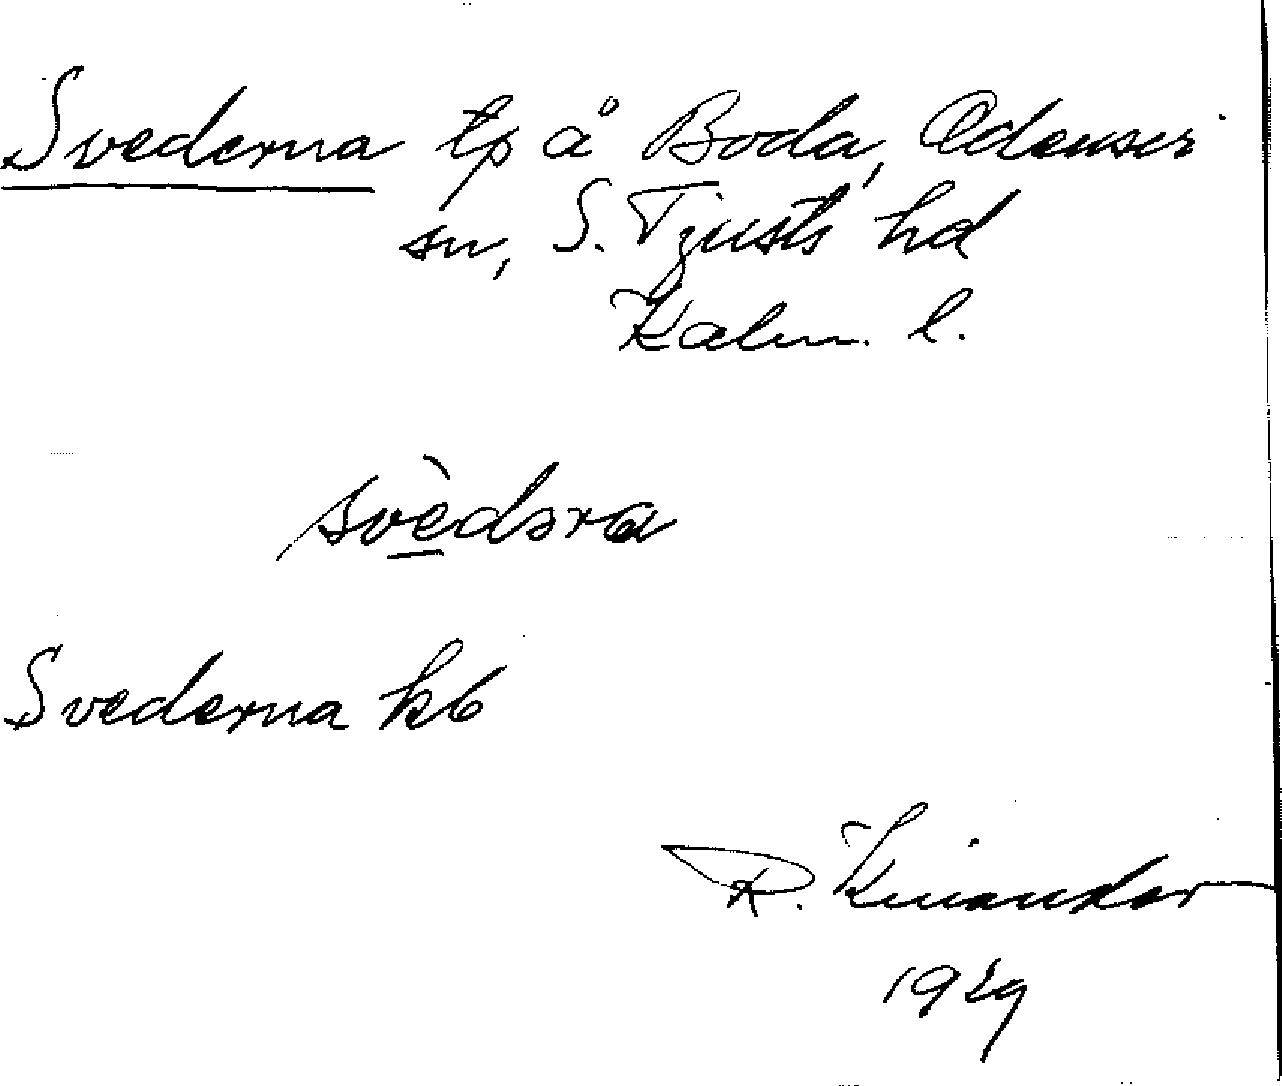 Svederna tp å Boda, Odensvi
sn, S. Tjusts hd
Kalm. l.
svèdəra
Svederna kb
R. Kinander
1929